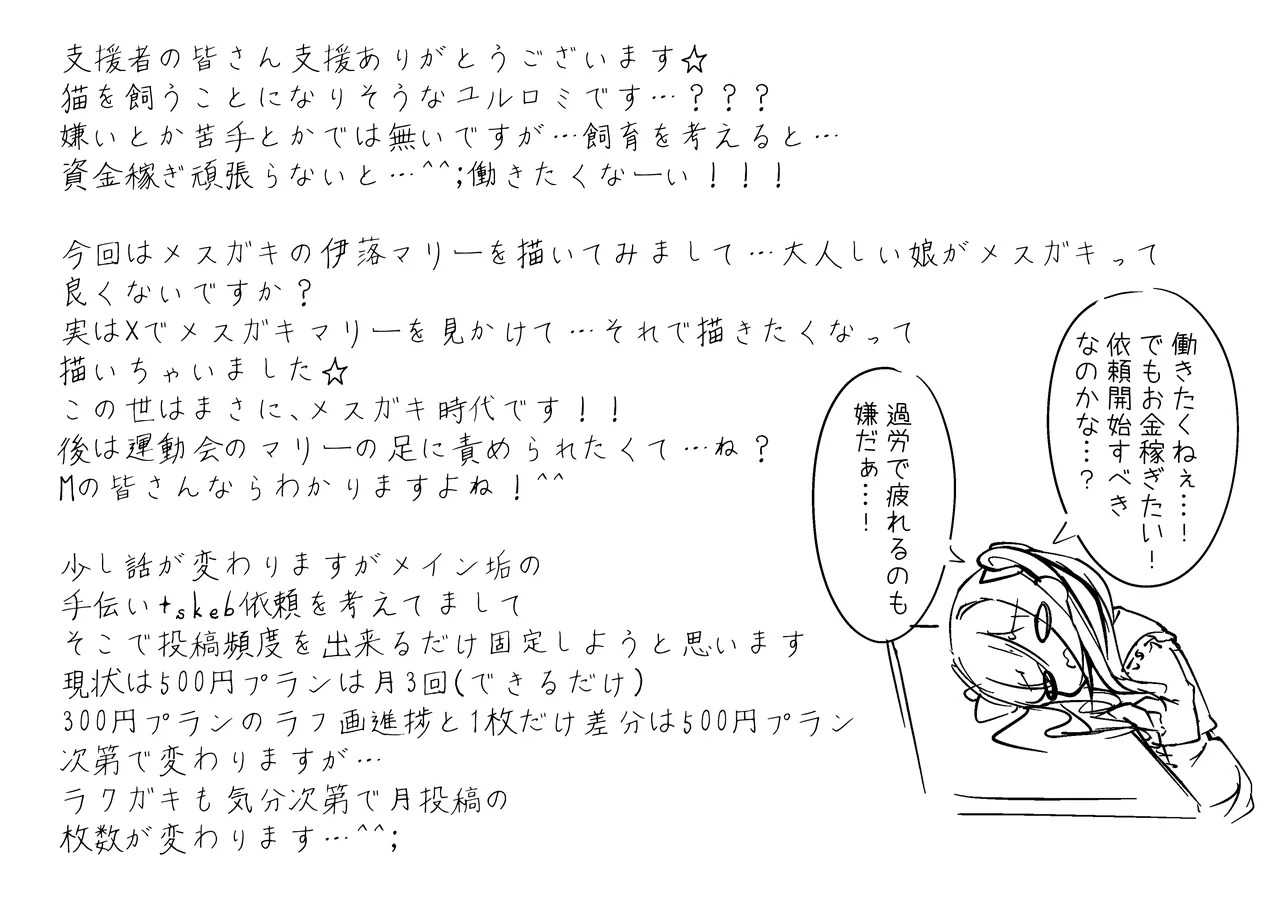 支援者の皆さん支援ありがとうございます☆
猫を飼うことになりそうなユルロミです…？？？
嫌いとか苦手とかでは無いですが…飼育を考えると…
資金稼ぎ頑張らないと…^^;働きたくなーい！！！
今回はメスガキの伊落マリーを描いてみまして…大人しい娘がメスガキって
良くないですか？
実はXでメスガキマリーを見かけて…それで描きたくなって
描いちゃいました☆
この世はまさに、メスガキ時代です！！
後は運動会のマリーの足に責められたくて…ね？
Mの皆さんならわかりますよね！^^
少し話が変わりますがメイン垢の
手伝い+skeb依頼を考えてまして
そこで投稿頻度を出来るだけ固定しようと思います
現状は500円プランは月3回(できるだけ)
300円プランのラフ画進捗と1枚だけ差分は500円プラン
次第で変わりますが…
ラクガキも気分次第で月投稿の
枚数が変わります…^^;
働きたくねぇ…！
でもお金稼ぎたい！
依頼開始すべき
なのかな…？
過労で疲れるのも
嫌だぁ…！